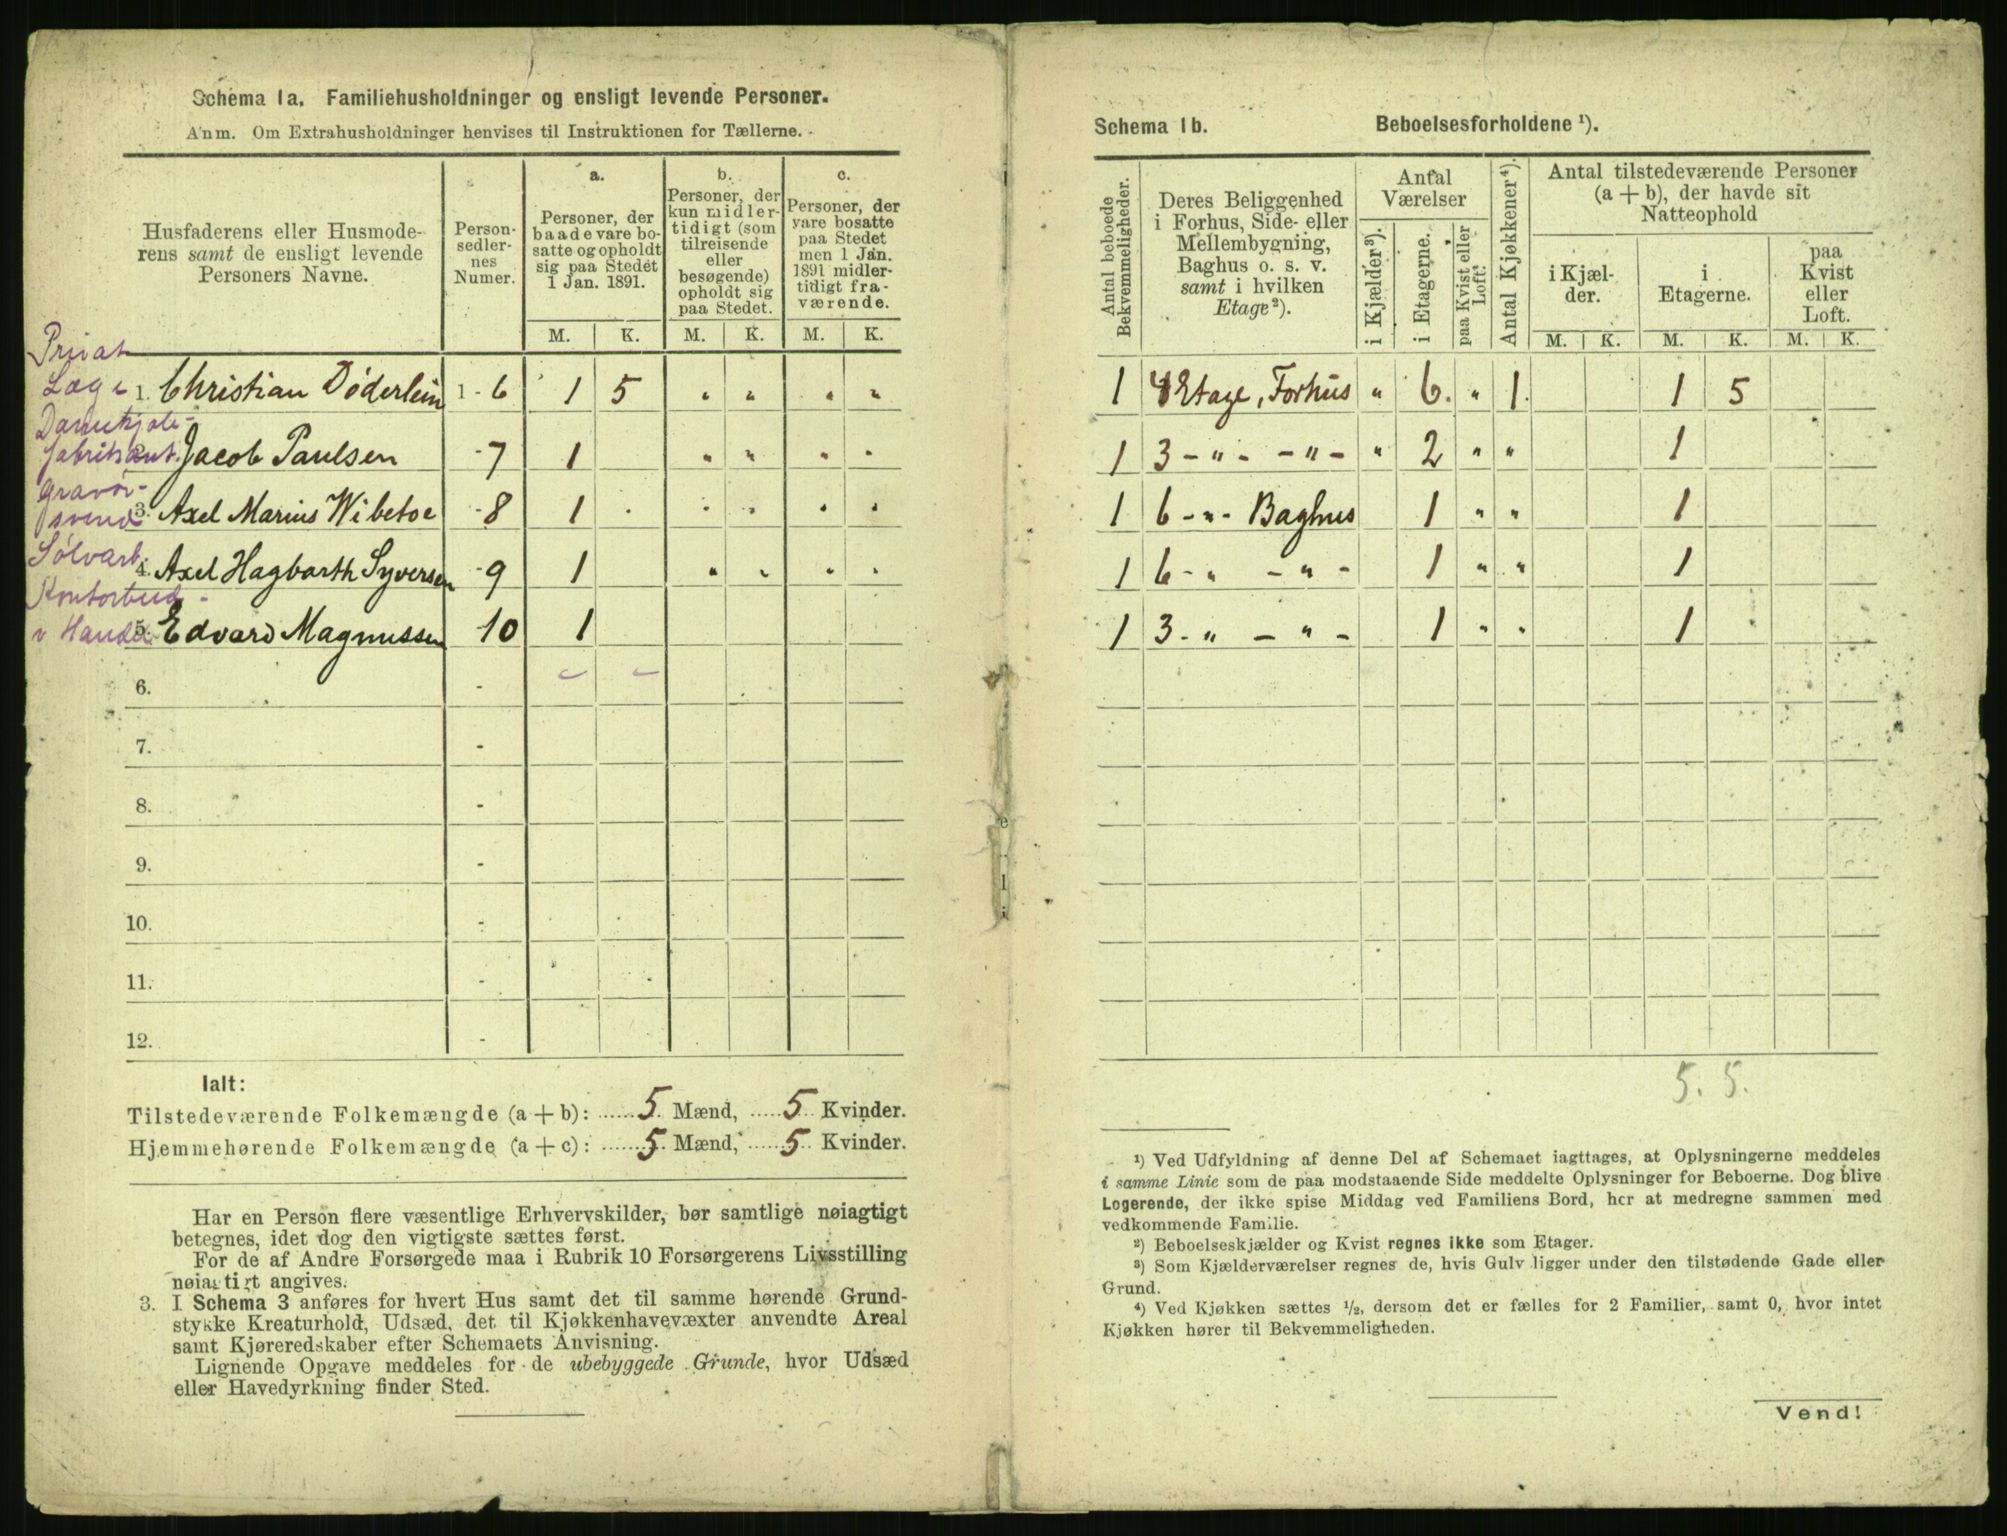 Schema 1a. Familiehusholdninger og ensligt levende Personer.
Anm. Om Extrahusholdninger henvises til Instruktionen for Tællerne.
Husfaderens eller Husmode-
rens samt de ensligt levende
Personers Navne.
Person-
sedler-
nes
Numer.
a.
Personer, der
baade vare bo-
satte og opholdt
sig paa Stedet
1 Jan. 1891.
b.
Personer, der
kun midler-
tidigt (som
tilreisende
eller
besøgende)
opholdt sig
paa Stedet.
c.
Personer, der
vare bosatte
paa Stedet
men 1 Jan.
1891 midler-
tidigt fra-
værende.
M. K. M. K. M. K.
Privat
Læge 1. Christian Döderlein 1 - 6 1 5 " " " "
Damekjole-
fabrikant. 2. Jacob Paulsen - 7 1 " " " "
Gravør-
svend 3. Axel Marius Wibetoe - 8 1 " " " "
Sølvarb. 4. Axel Hagbarth Syversen - 9 1 " " " "
Kontorbud -
v Handel 5. Edvard Magnussen 10 1
6. -
7. -
8. -
9. -
10. -
11. -
12. -
Ialt:
Tilstedeværende Folkemængde (a + b): 5 Mænd, 5 Kvinder.
Hjemmehørende Folkemængde (a + c): 5 Mænd, 5 Kvinder.
Har en Person flere væsentlige Erhvervskilder, bør samtlige nøiagtigt
betegnes, idet dog den vigtigste sættes først.
For de af Andre Forsørgede maa i Rubrik 10 Forsørgerens Livsstilling
nøiagtigt angives.
3. I Schema 3 anføres for hvert Hus samt det til samme hørende Grund-
stykke Kreaturhold, Udsæd, det til Kjøkkenhavevæxter anvendte Areal
samt Kjøreredskaber efter Schemaets Anvisning.
Lignende Opgave meddeles for de ubebyggede Grunde, hvor Udsæd
eller Havedyrkning finder Sted.
e
l
i
Schema 1b. Beboelsesforholdene ¹).
Antal beboede
Bekvemmeligheder.
Deres Beliggenhed
i Forhus, Side- eller
Mellembygning,
Baghus o. s. v.
samt i hvilken
Etage²).
Antal
Værelser
i Kjælder³).
i Etagerne.
paa Kvist eller
Loft.
Antal Kjøkkener⁴).
Antal tilstedeværende Personer
(a + b), der havde sit
Natteophold
i Kjæl-
der.
i
Etagerne.
paa
Kvist
eller
Loft.
M. K. M. K. M. K.
1 4 Etage, Forhus " 6. " 1. 1 5
1 3 - " - - " - " 2 " " 1
1 6 - " - Baghus 1 " " 1
1 6 - " - " - 1 " " 1
1 3 - " - " - 1 " " 1
5. 5.
¹) Ved Udfyldning af denne Del af Schemaet iagttages, at Oplysningerne meddeles
i samme Linie som de paa modstaaende Side meddelte Oplysninger for Beboerne. Dog blive
Logerende, der ikke spise Middag ved Familiens Bord, her at medregne sammen med
vedkommende Familie.
²) Beboelseskjælder og Kvist regnes ikke som Etager.
³) Som Kjælderværelser regnes de, hvis Gulv ligger under den tilstødende Gade eller
Grund.
⁴) Ved Kjøkken sættes ½, dersom det er fælles for 2 Familier, samt 0, hvor intet
Kjøkken hører til Bekvemmeligheden.
Vend!